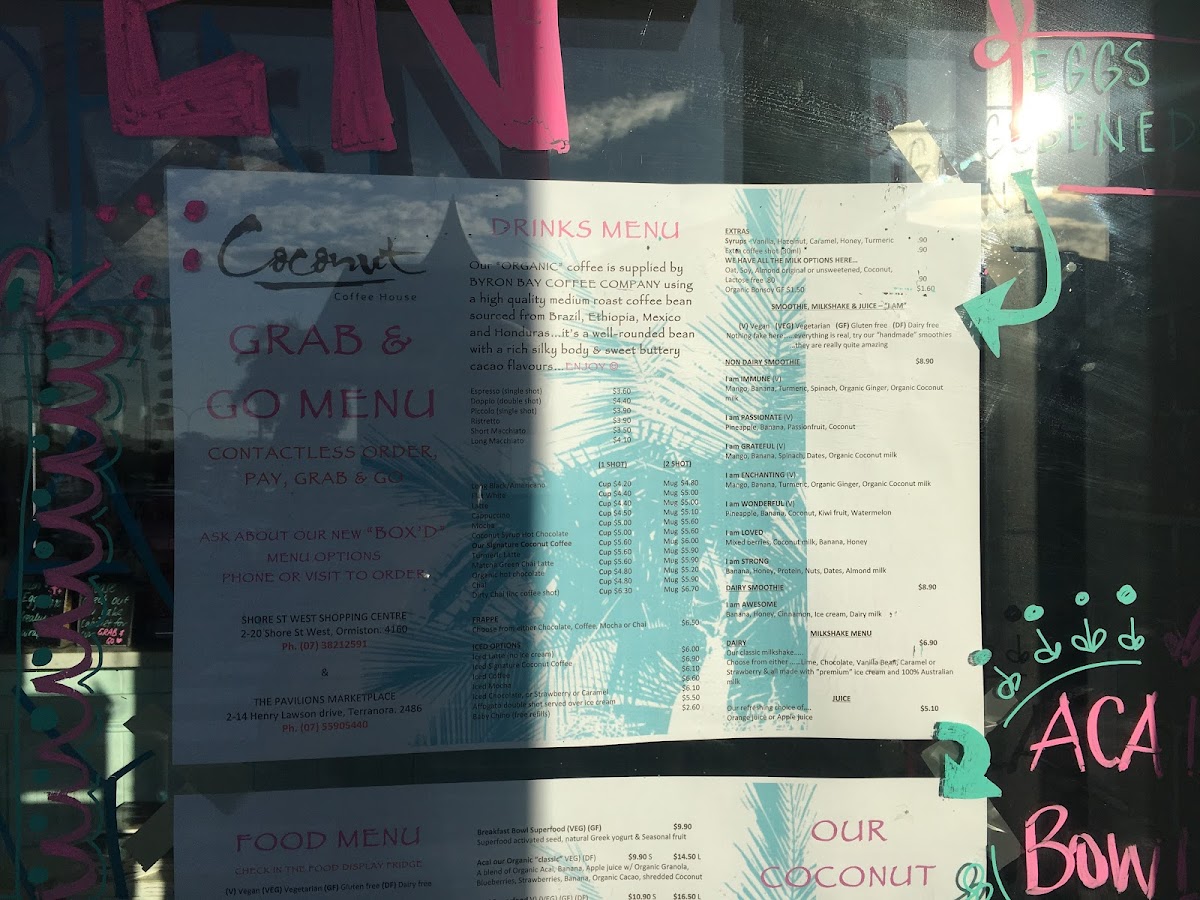 EN
EGGS
BENED
Coconut
Coffee House
GRAB &
GO MENU
CONTACTLESS ORDER,
PAY, GRAB & GO
ASK ABOUT OUR NEW "BOX'D"
MENU OPTIONS
PHONE OR VISIT TO ORDER
SHORE ST WEST SHOPPING CENTRE
2-20 Shore St West, Ormiston. 4160
Ph. (07) 38212591
&
THE PAVILIONS MARKETPLACE
2-14 Henry Lawson drive, Terranora. 2486
Ph. (07) 55905440
DRINKS MENU
Our "ORGANIC" coffee is supplied by
BYRON BAY COFFEE COMPANY using
a high quality medium roast coffee bean
sourced from Brazil, Ethiopia, Mexico
and Honduras...it's a well-rounded bean
with a rich silky body & sweet buttery
cacao flavours...ENJOY ☺
Espresso (single shot) $3.60
Dopple (double shot) $4.40
Piccolo (single shot) $3.90
Ristretto $3.90
Short Macchiato $3.50
Long Macchiato $4.10
(1 SHOT) (2 SHOT)
Long Black/Americano Cup $4.20 Mug $4.80
Flat White Cup $4.40 Mug $5.00
Latte Cup $4.40 Mug $5.00
Cappuccino Cup $4.50 Mug $5.10
Mocha Cup $5.00 Mug $5.60
Coconut Syrup Hot Chocolate Cup $5.00 Mug $5.60
Our Signature Coconut Coffee Cup $5.60 Mug $6.00
Turmeric Latte Cup $5.60 Mug $5.90
Matcha Green Chai Latte Cup $5.60 Mug $5.90
Organic hot chocolate Cup $4.80 Mug $5.20
Chai Cup $4.80 Mug $5.90
Dirty Chai (inc coffee shot) Cup $6.30 Mug $6.70
FRAPPE
Choose from either Chocolate, Coffee, Mocha or Chai $6.50
ICED OPTIONS
Iced Latte (no ice cream) $6.00
Iced Signature Coconut Coffee $6.90
Iced Coffee $6.10
Iced Mocha $6.60
Iced Chocolate, or Strawberry or Caramel $6.10
Affogato double shot served over ice cream $5.50
Baby Chino (free refills) $2.60
EXTRAS
Syrups - Vanilla, Hazelnut, Caramel, Honey, Turmeric .90
Extra coffee shot (30ml) .90
WE HAVE ALL THE MILK OPTIONS HERE...
Oat, Soy, Almond original or unsweetened, Coconut,
Lactose free .80 .90
Organic Bonsoy GF $1.50 $1.60
SMOOTHIE, MILKSHAKE & JUICE – "I AM"
(V) Vegan (VEG) Vegetarian (GF) Gluten free (DF) Dairy free
Nothing fake here.... everything is real, try our "handmade" smoothies
...they are really quite amazing
NON DAIRY SMOOTHIE $8.90
I am IMMUNE (V)
Mango, Banana, Turmeric, Spinach, Organic Ginger, Organic Coconut
milk
I am PASSIONATE (V)
Pineapple, Banana, Passionfruit, Coconut
I am GRATEFUL (V)
Mango, Banana, Spinach, Dates, Organic Coconut milk
I am ENCHANTING (V)
Mango, Banana, Turmeric, Organic Ginger, Organic Coconut milk
I am WONDERFUL (V)
Pineapple, Banana, Coconut, Kiwi fruit, Watermelon
I am LOVED
Mixed berries, Coconut milk, Banana, Honey
I am STRONG
Banana, Honey, Protein, Nuts, Dates, Almond milk
DAIRY SMOOTHIE $8.90
I am AWESOME
Banana, Honey, Cinnamon, Ice cream, Dairy milk
MILKSHAKE MENU
DAIRY $6.90
Our classic milkshake.....
Choose from either .....Lime, Chocolate, Vanilla Bean, Caramel or
Strawberry & all made with "premium" ice cream and 100% Australian
milk
JUICE
Our refreshing choice of.... $5.10
Orange juice or Apple juice
ACA
BOW
GRAB &
GO
FOOD MENU
CHECK IN THE FOOD DISPLAY FRIDGE
(V) Vegan (VEG) Vegetarian (GF) Gluten free (DF) Dairy free
Breakfast Bowl Superfood (VEG) (GF) $9.90
Superfood activated seed, natural Greek yogurt & Seasonal fruit
Acai our Organic "classic" VEG) (DF) $9.90 S $14.50 L
A blend of Organic Acai, Banana, Apple juice w/ Organic Granola,
Blueberries, Strawberries, Banana, Organic Cacao, shredded Coconut
(V) (VEG) (GF) (DF) $10.90 S $16.50 L
OUR
COCONUT